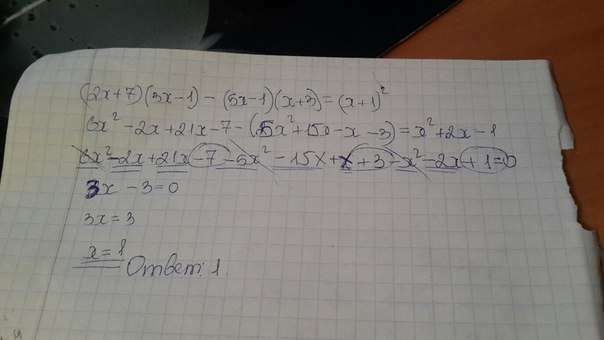 (2x+7)(3x-1)-(5x-1)(x+3)=(x+1)²
6x²-2x+21x-7-(5x²+15x-x-3)=x²+2x-1
6x²-2x+21x-7-5x²-15x+x+3-x²-2x+1=0
3x-3=0
3x=3
x=1
Ответ: 1.